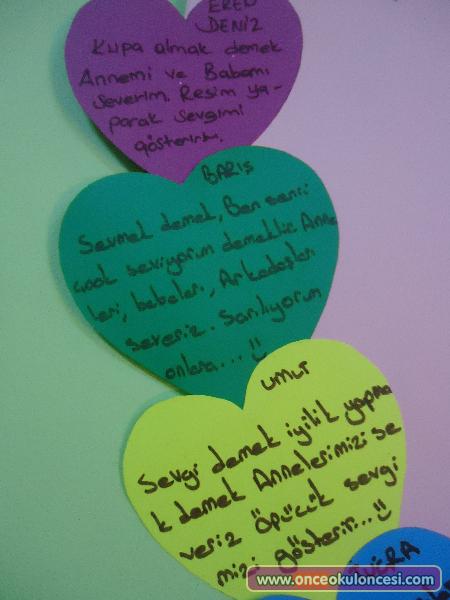 EREN
DENİZ
Kupa almak demek
Annemi ve Babamı
severim. Resim ya-
parak sevgimi
gösteririm.
BARIŞ
Sevmek demek, Ben seni
çook seviyorum demektir. Anne
leri, bebeleri, Arkadaşları
severiz. Sarılıyorum
onlara...
umur
Sevgi demek iyilik yapma
k demek Annelerimizi se
veriz öpücük sevgi
mizi gösterir...
www.onceokuloncesi.com